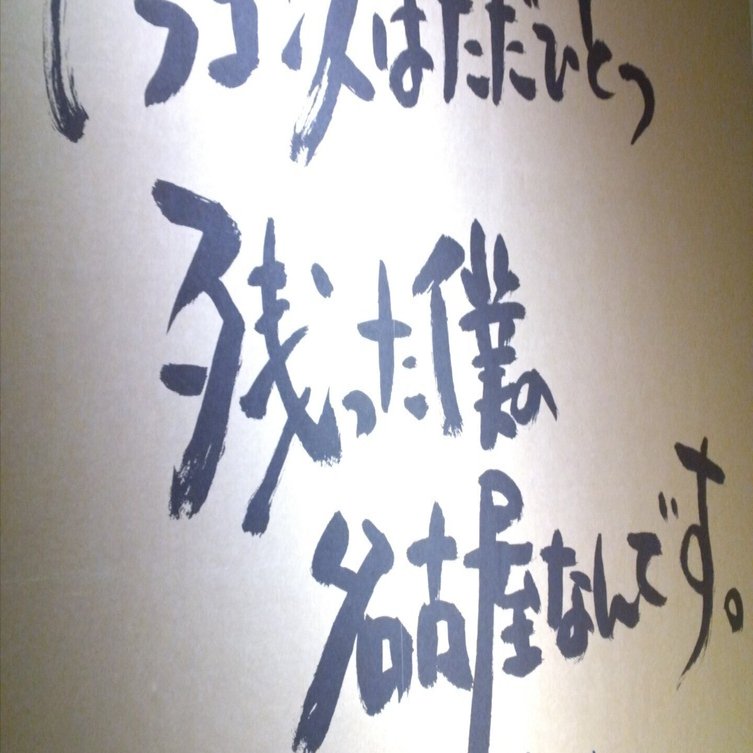 次はただひとつ
残った僕の
名古屋なんです。